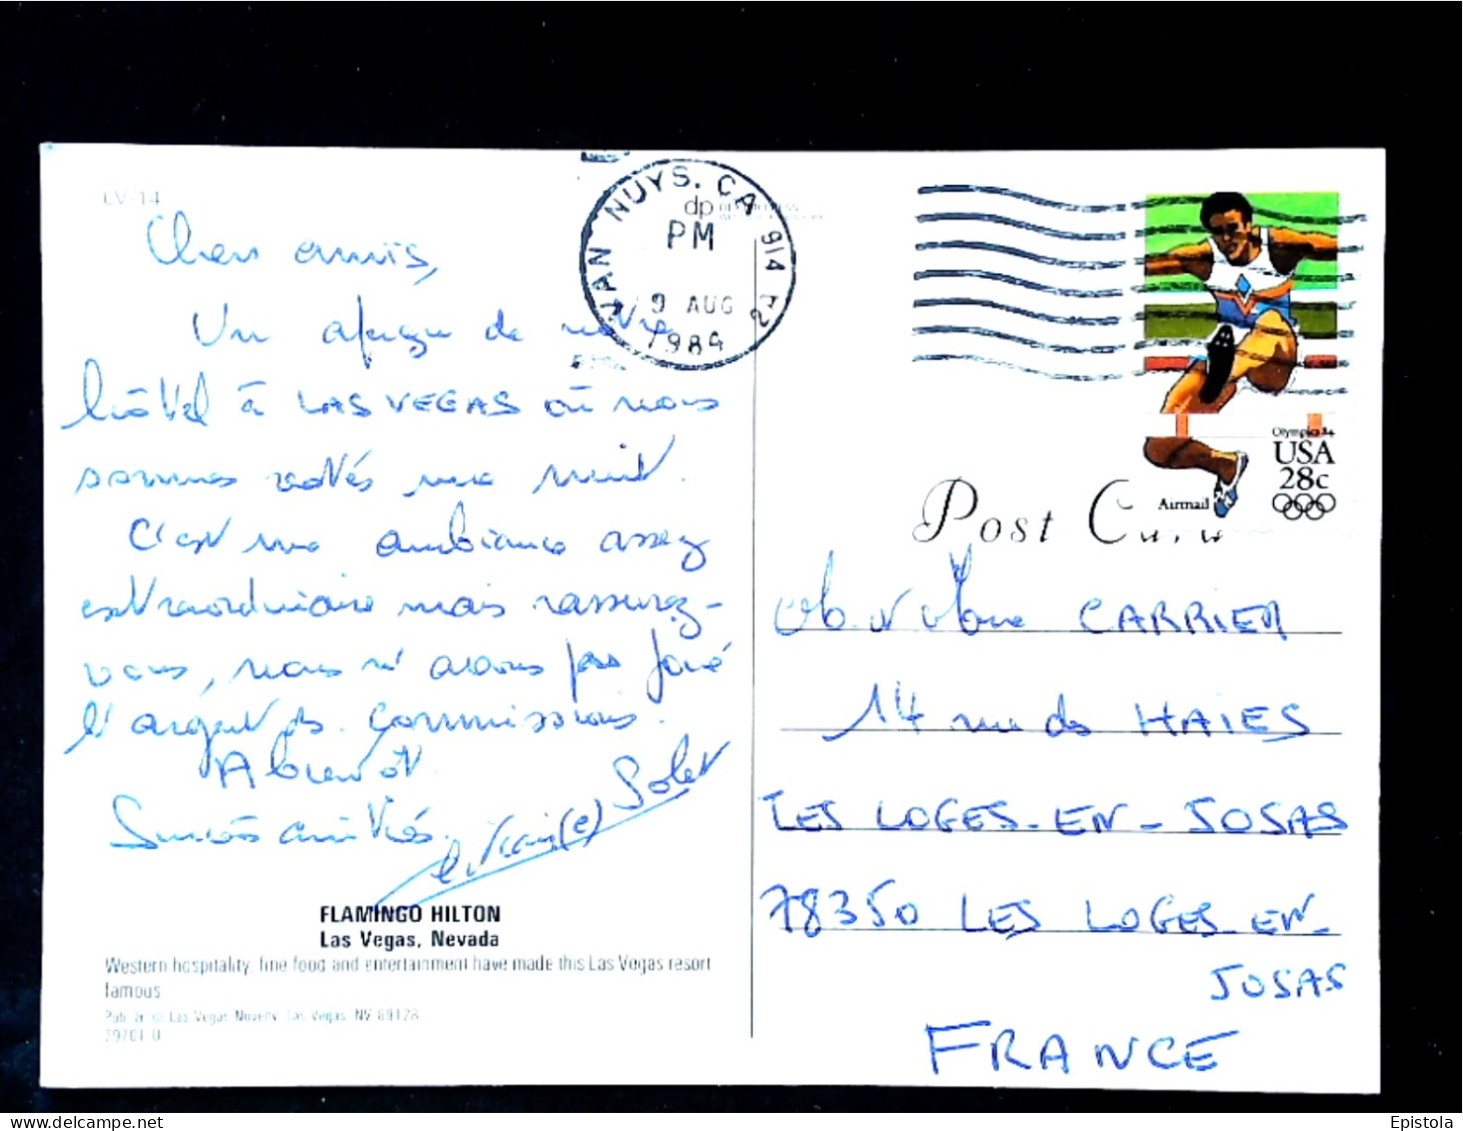 LV-14
Chers amis,
Un aperçu de notre
hôtel à LAS VEGAS où nous
sommes restés une nuit.
C'est une ambiance assez
extraordinaire mais rassurez-
vous, nous n'avons pas joué
l'argent des commissions.
A bientôt.
Sincères amitiés.
Solet
FLAMINGO HILTON
Las Vegas, Nevada
Western hospitality, fine food and entertainment have made this Las Vegas resort
famous
Pub. & © Las Vegas Novelty, Las Vegas, NV 89128
VAN NUYS, CA 914
dp
PM
9 AUG
1984
Olympics 84
USA
28c
Airmail
Post
M. et Mme CARRIER
14 rue des HAIES
LES LOGES-EN-JOSAS
78350 LES LOGES-EN-
JOSAS
FRANCE
Epistola